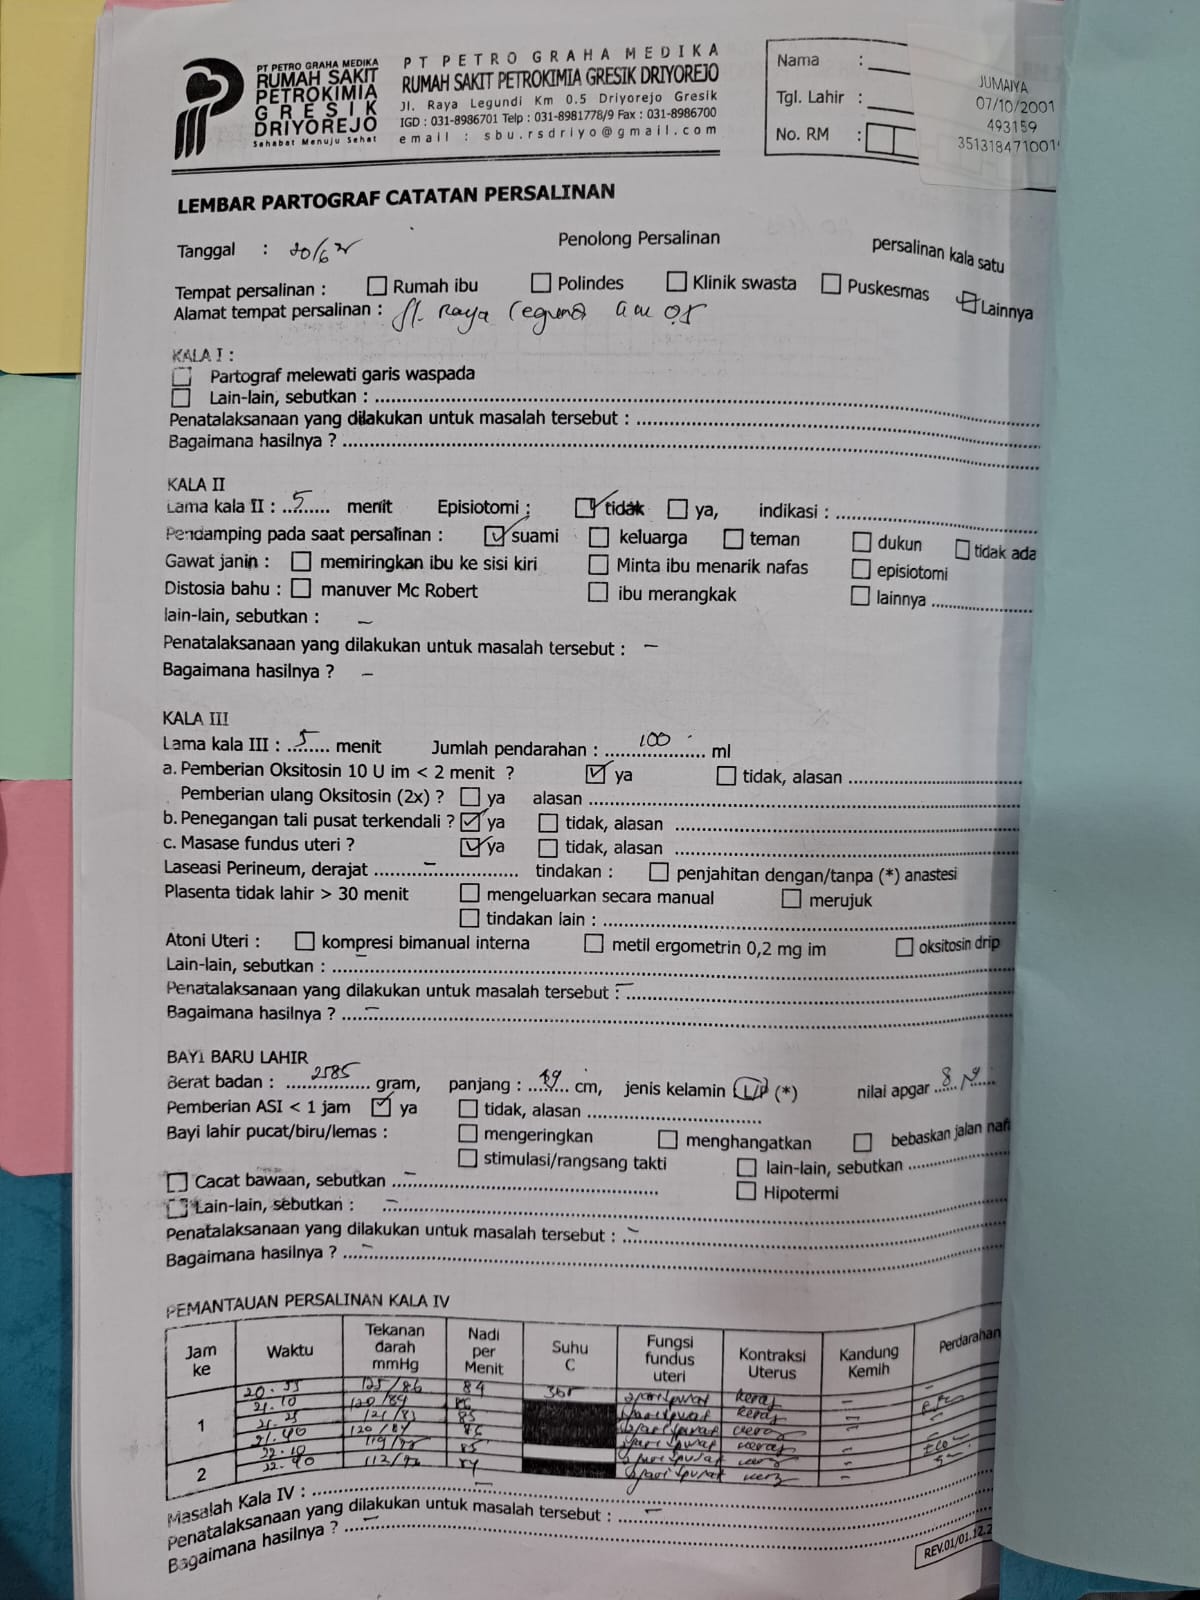 PT PETRO GRAHA MEDIKA
RUMAH SAKIT
PETROKIMIA
GRESIK
DRIYOREJO
Sahabat Menuju Sehat
PT PETRO GRAHA MEDIKA
RUMAH SAKIT PETROKIMIA GRESIK DRIYOREJO
Jl. Raya Legundi Km 0.5 Driyorejo Gresik
IGD : 031-8986701 Telp : 031-8981778/9 Fax : 031-8986700
email : sbu.rsdriyo@gmail.com
Nama :
Tgl. Lahir :
No. RM :
JUMAIYA
07/10/2001
493159
351318471001
LEMBAR PARTOGRAF CATATAN PERSALINAN
Tanggal : 20/6 Penolong Persalinan persalinan kala satu
Tempat persalinan : Rumah ibu Polindes Klinik swasta Puskesmas Lainnya
Alamat tempat persalinan : Jl. Raya Legundi
KALA I :
Partograf melewati garis waspada
Lain-lain, sebutkan :
Penatalaksanaan yang dilakukan untuk masalah tersebut :
Bagaimana hasilnya ?
KALA II
Lama kala II : 5 menit Episiotomi : tidak ya, indikasi :
Pendamping pada saat persalinan : suami keluarga teman dukun tidak ada
Gawat janin : memiringkan ibu ke sisi kiri Minta ibu menarik nafas episiotomi
Distosia bahu : manuver Mc Robert ibu merangkak lainnya
lain-lain, sebutkan : -
Penatalaksanaan yang dilakukan untuk masalah tersebut : -
Bagaimana hasilnya ? -
KALA III
Lama kala III : 5 menit Jumlah pendarahan : 100 ml
a. Pemberian Oksitosin 10 U im < 2 menit ? ya tidak, alasan
Pemberian ulang Oksitosin (2x) ? ya alasan
b. Penegangan tali pusat terkendali ? ya tidak, alasan
c. Masase fundus uteri ? ya tidak, alasan
Laseasi Perineum, derajat - tindakan : penjahitan dengan/tanpa (*) anastesi
Plasenta tidak lahir > 30 menit mengeluarkan secara manual merujuk
tindakan lain :
Atoni Uteri : kompresi bimanual interna metil ergometrin 0,2 mg im oksitosin drip
Lain-lain, sebutkan : -
Penatalaksanaan yang dilakukan untuk masalah tersebut : -
Bagaimana hasilnya ? -
BAYI BARU LAHIR
Berat badan : 2585 gram, panjang : 49 cm, jenis kelamin L/P (*) nilai apgar 8
Pemberian ASI < 1 jam ya tidak, alasan
Bayi lahir pucat/biru/lemas : mengeringkan menghangatkan bebaskan jalan naf
stimulasi/rangsang takti lain-lain, sebutkan
Cacat bawaan, sebutkan - Hipotermi
Lain-lain, sebutkan : -
Penatalaksanaan yang dilakukan untuk masalah tersebut : -
Bagaimana hasilnya ? -
PEMANTAUAN PERSALINAN KALA IV
Jam ke Waktu Tekanan darah mmHg Nadi per Menit Suhu C Fungsi fundus uteri Kontraksi Uterus Kandung Kemih Perdarahan
1 20.55 125/86 84 365 keras -
21.10 120/84 keras
21.25 121/83 85
21.40 120/84 keras -
22.10 85 -
2 22.40 84 -
Masalah Kala IV : -
Penatalaksanaan yang dilakukan untuk masalah tersebut : -
Bagaimana hasilnya ? -
REV.01/01.12.2